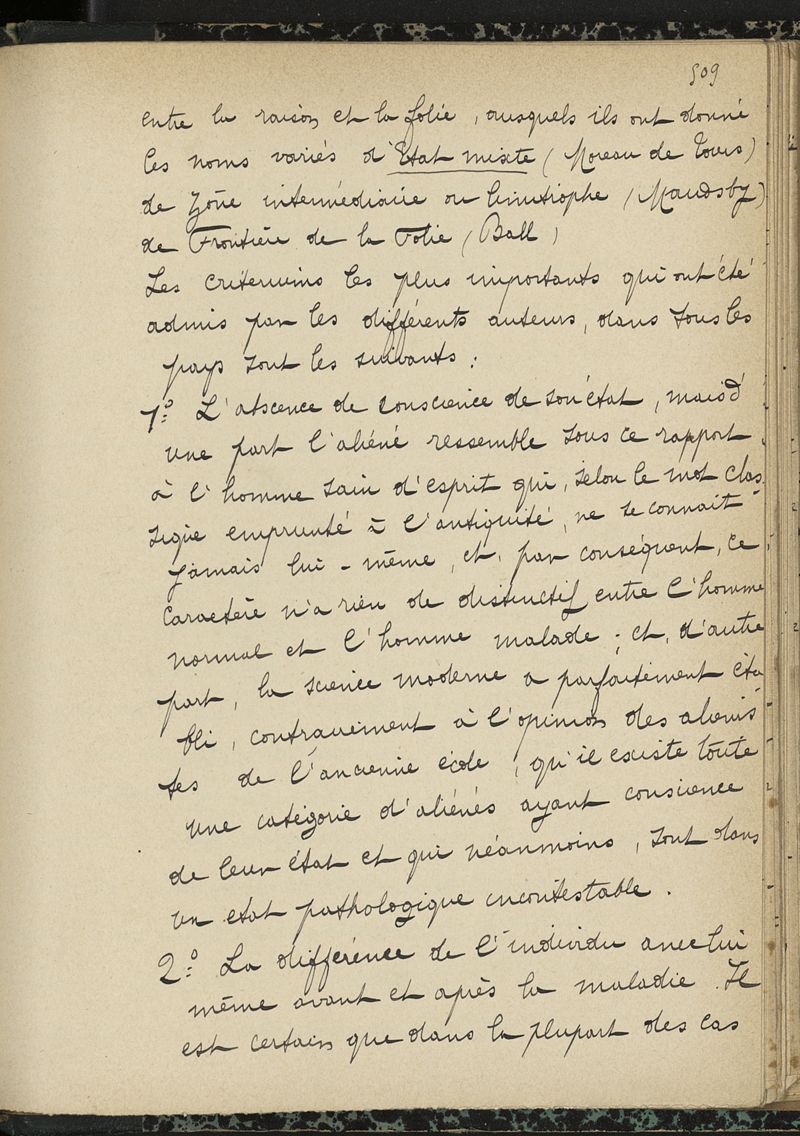 509
entre la raison et la folie, auxquels ils ont donné
les noms variés d'Etat mixte (Moreau de Tours)
de Zône intermédiaire ou limitrophe (Maudsley)
de Frontière de la Folie (Ball)
Les criteriums les plus importants qui ont été
admis par les différents auteurs, dans tous les
pays sont les suivants :
1º L'abscence de conscience de son état, mais d'
une part l'aliéné ressemble sous ce rapport
à l'homme sain d'esprit qui, selon le mot clas
sique emprunté à l'antiquité, ne se connait
jamais lui-même, et, par conséquent, ce
caractère n'a rien de distinctif entre l'homme
normal et l'homme malade ; et, d'autre
part, la science moderne a parfaitement éta
bli, contrairement à l'opinion des alienis
tes de l'ancienne école, qu'il existe toute
une catégorie d'aliénés ayant conscience
de leur état et qui néanmoins, sont dans
un etat pathologique incontestable.
2º La différence de l'individu avec lui
même avant et après la maladie. Il
est certain que dans la plupart des cas